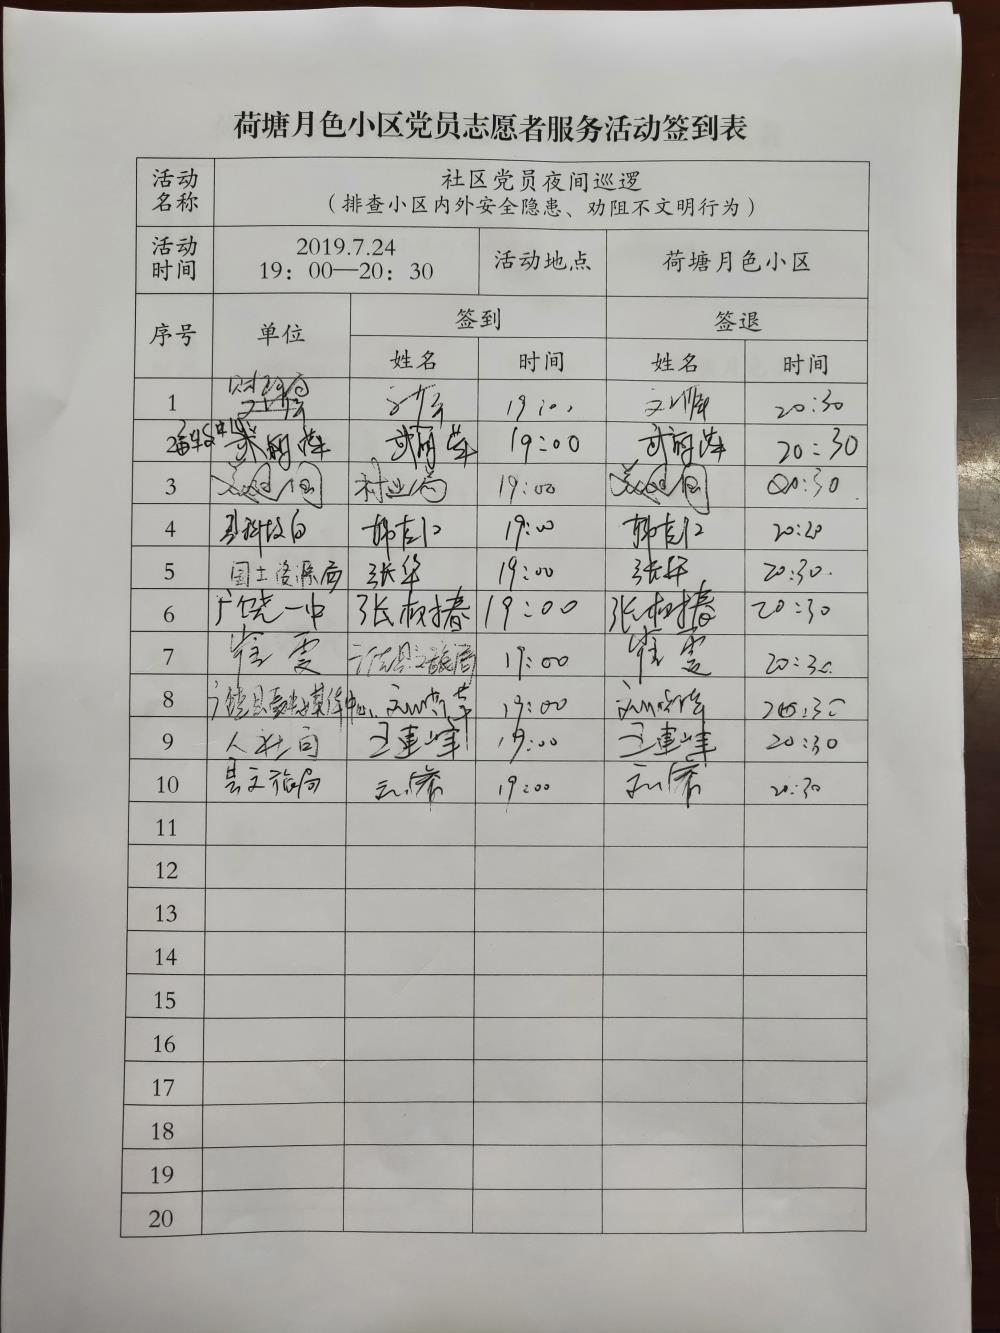 荷塘月色小区党员志愿者服务活动签到表
活动名称 社区党员夜间巡逻
（排查小区内外安全隐患、劝阻不文明行为）
活动时间 2019.7.24 19：00—20：30 活动地点 荷塘月色小区
序号 单位 签到 签退
姓名 时间 姓名 时间
1 20:30
2 武丽萍 武丽萍 19:00 武丽萍 20:30
3 林业局 19:00 20:30
4 县科技局 韩吉仁 19:00 韩吉仁 20:30
5 国土资源局 张华 19:00 张华 20:30.
6 广饶一中 张树春 19:00 张树春 20:30
7 崔雯 广饶县文旅局 19:00 崔雯 20:30
8 广饶县融媒体中心 19:00 20:30
9 人社局 王建峰 19:00 王建峰 20:30
10 县文旅局 19:00 20:30
11
12
13
14
15
16
17
18
19
20